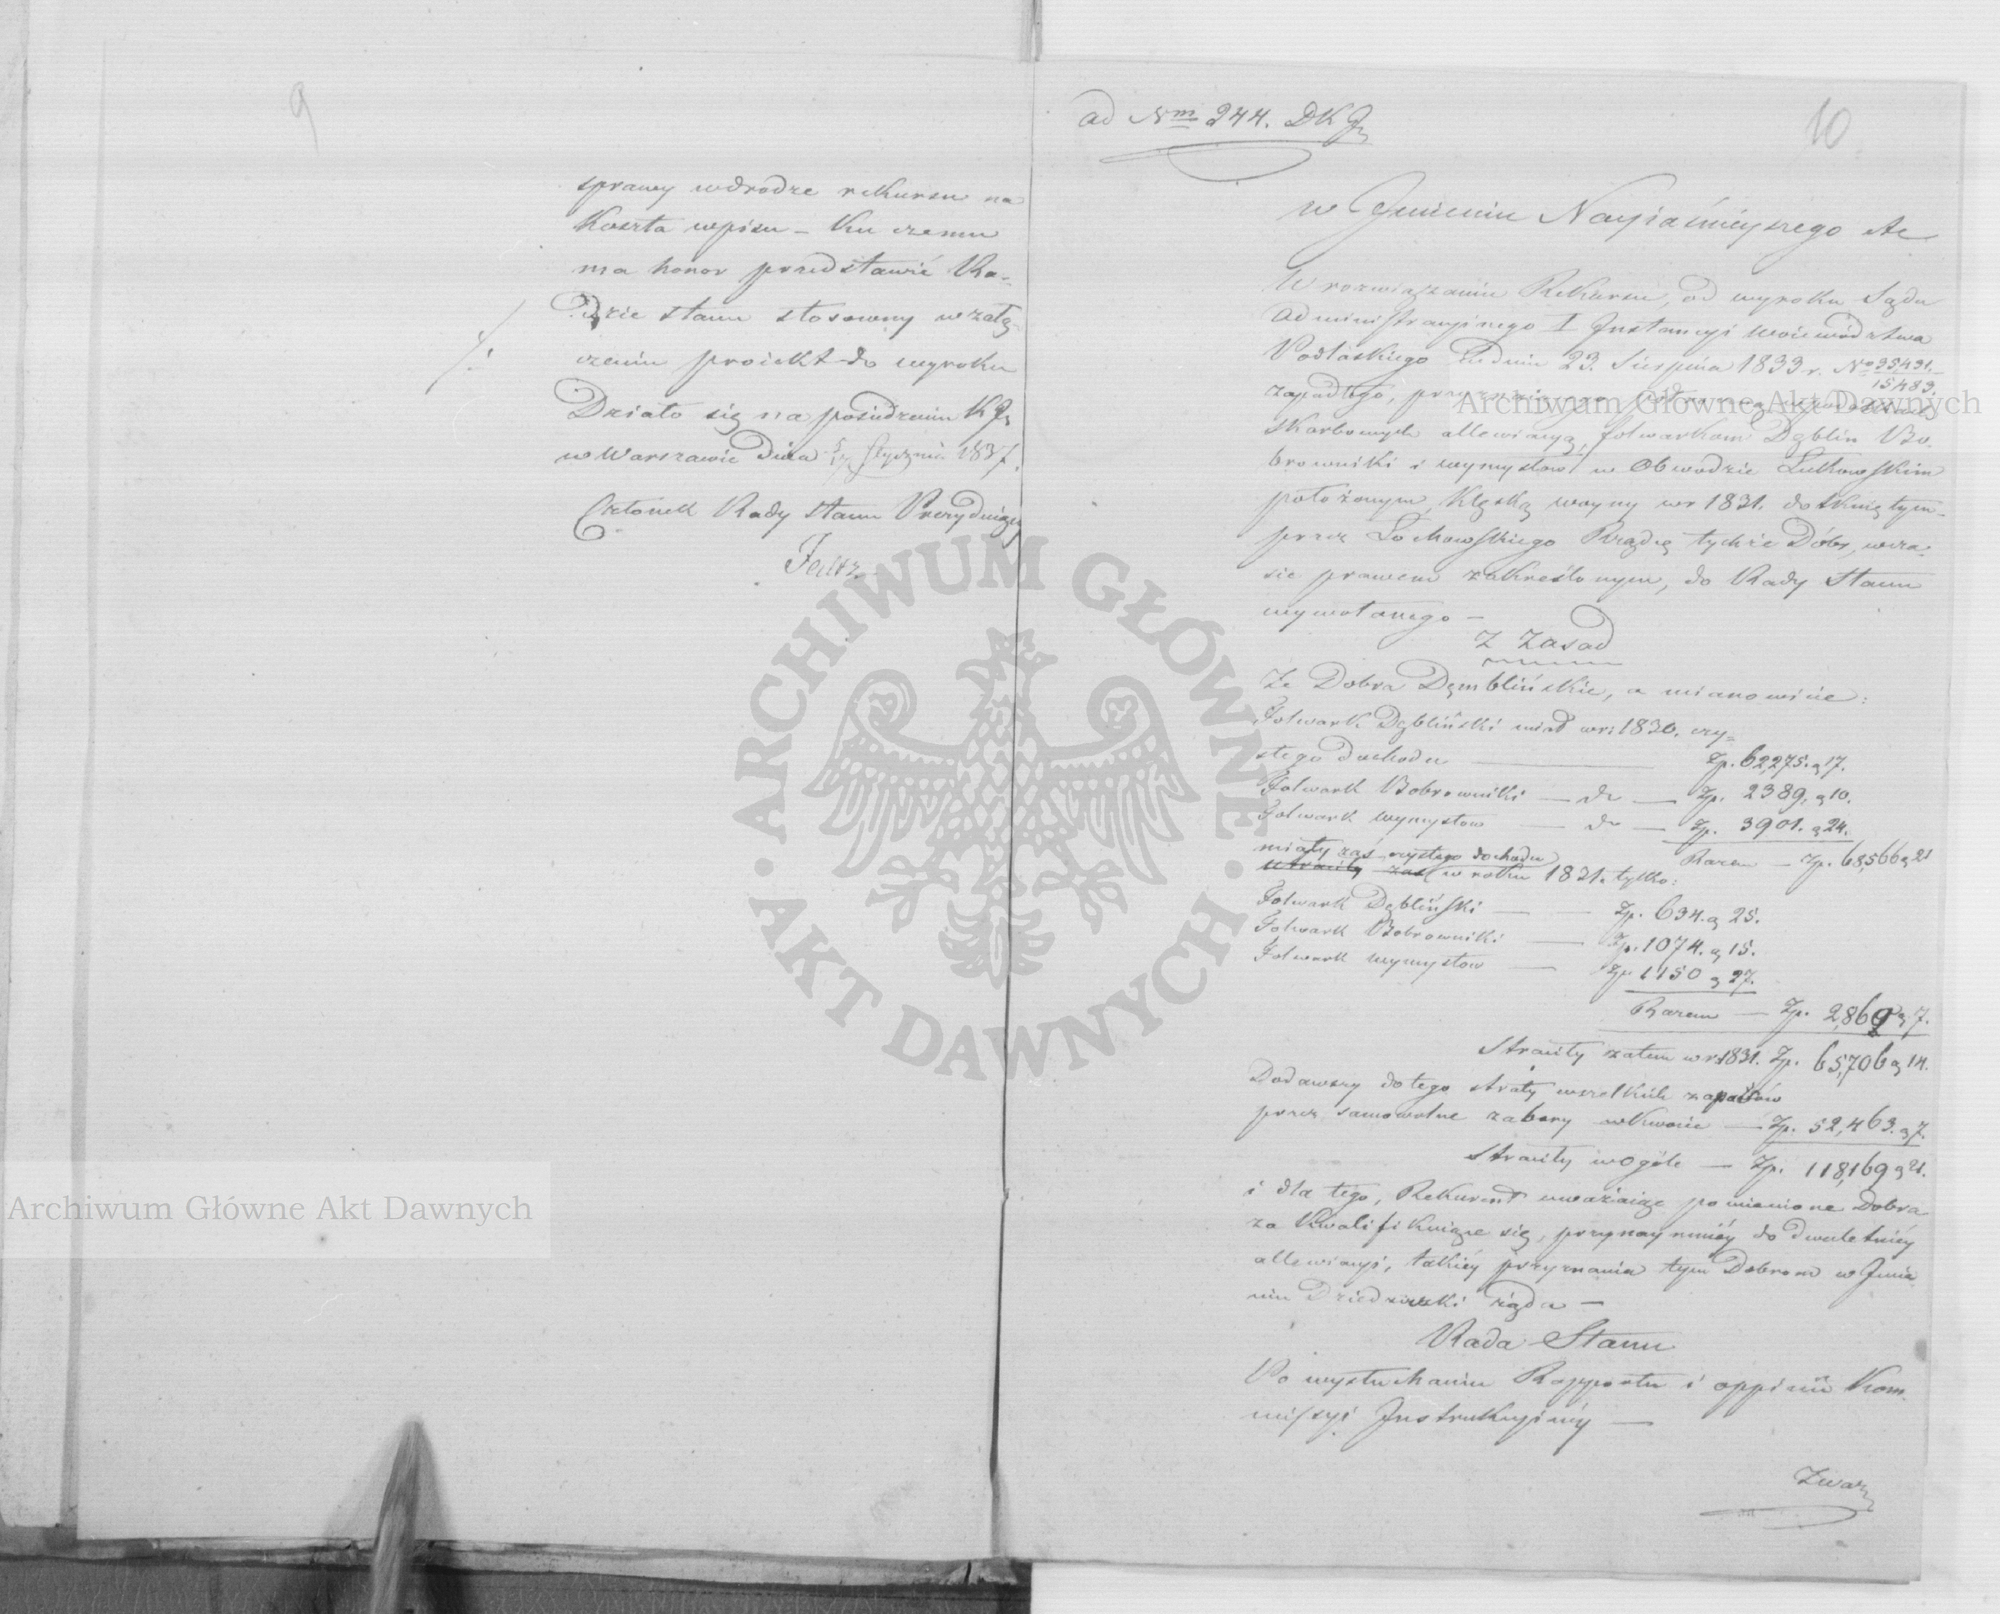 9
sprawy wdrodze rekursu na
koszta wpisu – Ku czemu
ma honor przedstawić Ra-
dzie stanu stosowny w załą-
czeniu proiekt do wyroku
Działo się na posiedzeniu K Js
w Warszawie dnia Stycznia 1837.
Członek Rady Stanu Prezyduiący
ad Nm 244. DKJ
10
w Jmieniu Nayiaśnieyszego etc
W rozwiązaniu Rekursu, od wyroku Sądu
Administracyinego I Jnstancyi Woiewództwa
Podlaskiego z dnia 23. Sierpnia 1833 r. No 35431.
15483.
zapadłego,
skarbowych allewiacyą, folwarkom Dęblin Bo-
browniki i Wymysłów w Obwodzie Łukowskim
położonym, klęską woyny w r 1831. dotkniętym–
przez Łochowskiego Rządcę tychże Dóbr, w cza-
sie prawem zakreślonym, do Rady Stanu
wywołanego –
Z Zasad
Że Dobra Dęmblińskie, a mianowicie:
Folwark Dębliński miał w r: 1830. czy-
stego dochodu — Zp. 62,275. g 17.
Folwark Bobrowniki — do — Zp. 2389. g 10.
Folwark Wymysłow — do — Zp. 3901. g 24.
Razem — Zp. 68,566 g 21
miały zaś czystego dochodu
utraciły zaś w roku 1831. tylko:
Folwark Dębliński — — Zp. 634. g 25.
Folwark Bobrowniki — Zp. 1074. g 15.
Folwark Wymysłow — Zp 1150 g 27.
Razem — Zp. 2,860 g 7.
Straciły zatem w r 1831. Zp. 65,706 g 14.
Dodawszy do tego straty wszelkich zapasów
przez samowolne zabory w kwocie — Zp. 52,463. g 7.
Straciły w ogóle — Zp. 118,169 g 21.
i dla tego, Rekurent uważaiąc pomienione Dobra
za kwalifikuiące się, przynaymniéy do dwuletniéy
allewiacyi, takiéy przyznania tym Dobrom w Jmie
niu Dziedziczki żąda –
Rada Stanu
Po wysłuchaniu Rapportu i oppinii Kom-
missyi Jnstrukcyinéy —
Zważ
ARCHIWUM GŁÓWNE
AKT DAWNYCH
Archiwum Główne Akt Dawnych
Archiwum Główne Akt Dawnych